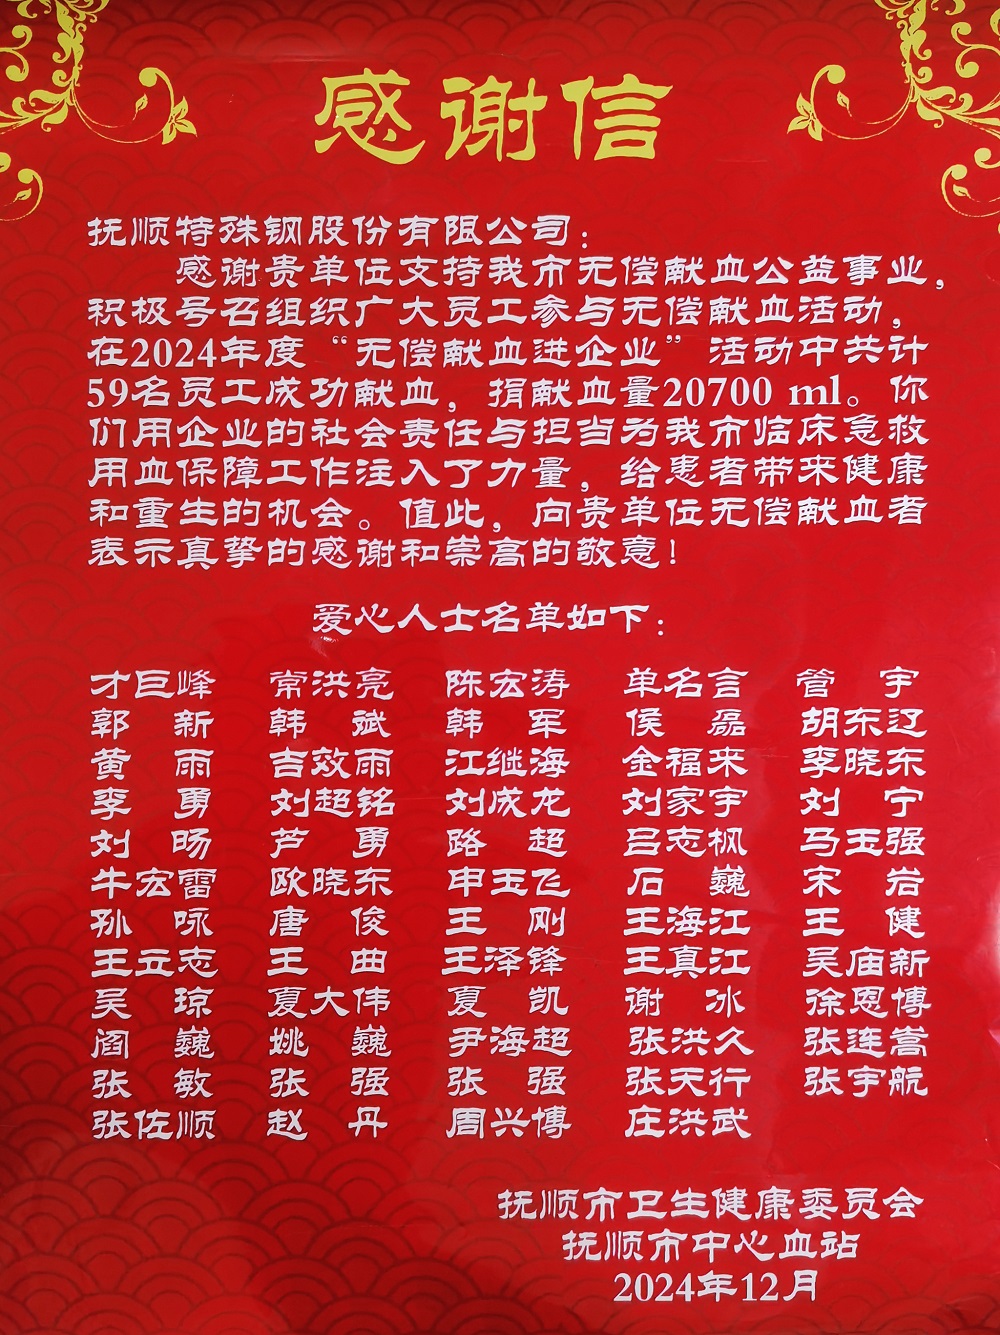 感谢信
抚顺特殊钢股份有限公司：
感谢贵单位支持我市无偿献血公益事业，
积极号召组织广大员工参与无偿献血活动，
在2024年度“无偿献血进企业”活动中共计
59名员工成功献血，捐献血量20700 ml。你
们用企业的社会责任与担当为我市临床急救
用血保障工作注入了力量，给患者带来健康
和重生的机会。值此，向贵单位无偿献血者
表示真挚的感谢和崇高的敬意！
爱心人士名单如下：
才巨峰 常洪亮 陈宏涛 单名言 管宇
郭新 韩斌 韩军 侯磊 胡东辽
黄雨 吉效雨 江继海 金福来 李晓东
李勇 刘超铭 刘成龙 刘家宇 刘宁
刘旸 芦勇 路超 吕志枫 马玉强
牛宏雷 欧晓东 申玉飞 石巍 宋岩
孙咏 唐俊 王刚 王海江 王健
王立志 王曲 王泽锋 王真江 吴庙新
吴琼 夏大伟 夏凯 谢冰 徐恩博
阎巍 姚巍 尹海超 张洪久 张连嵩
张敏 张强 张强 张天行 张宇航
张佐顺 赵丹 周兴博 庄洪武
抚顺市卫生健康委员会
抚顺市中心血站
2024年12月